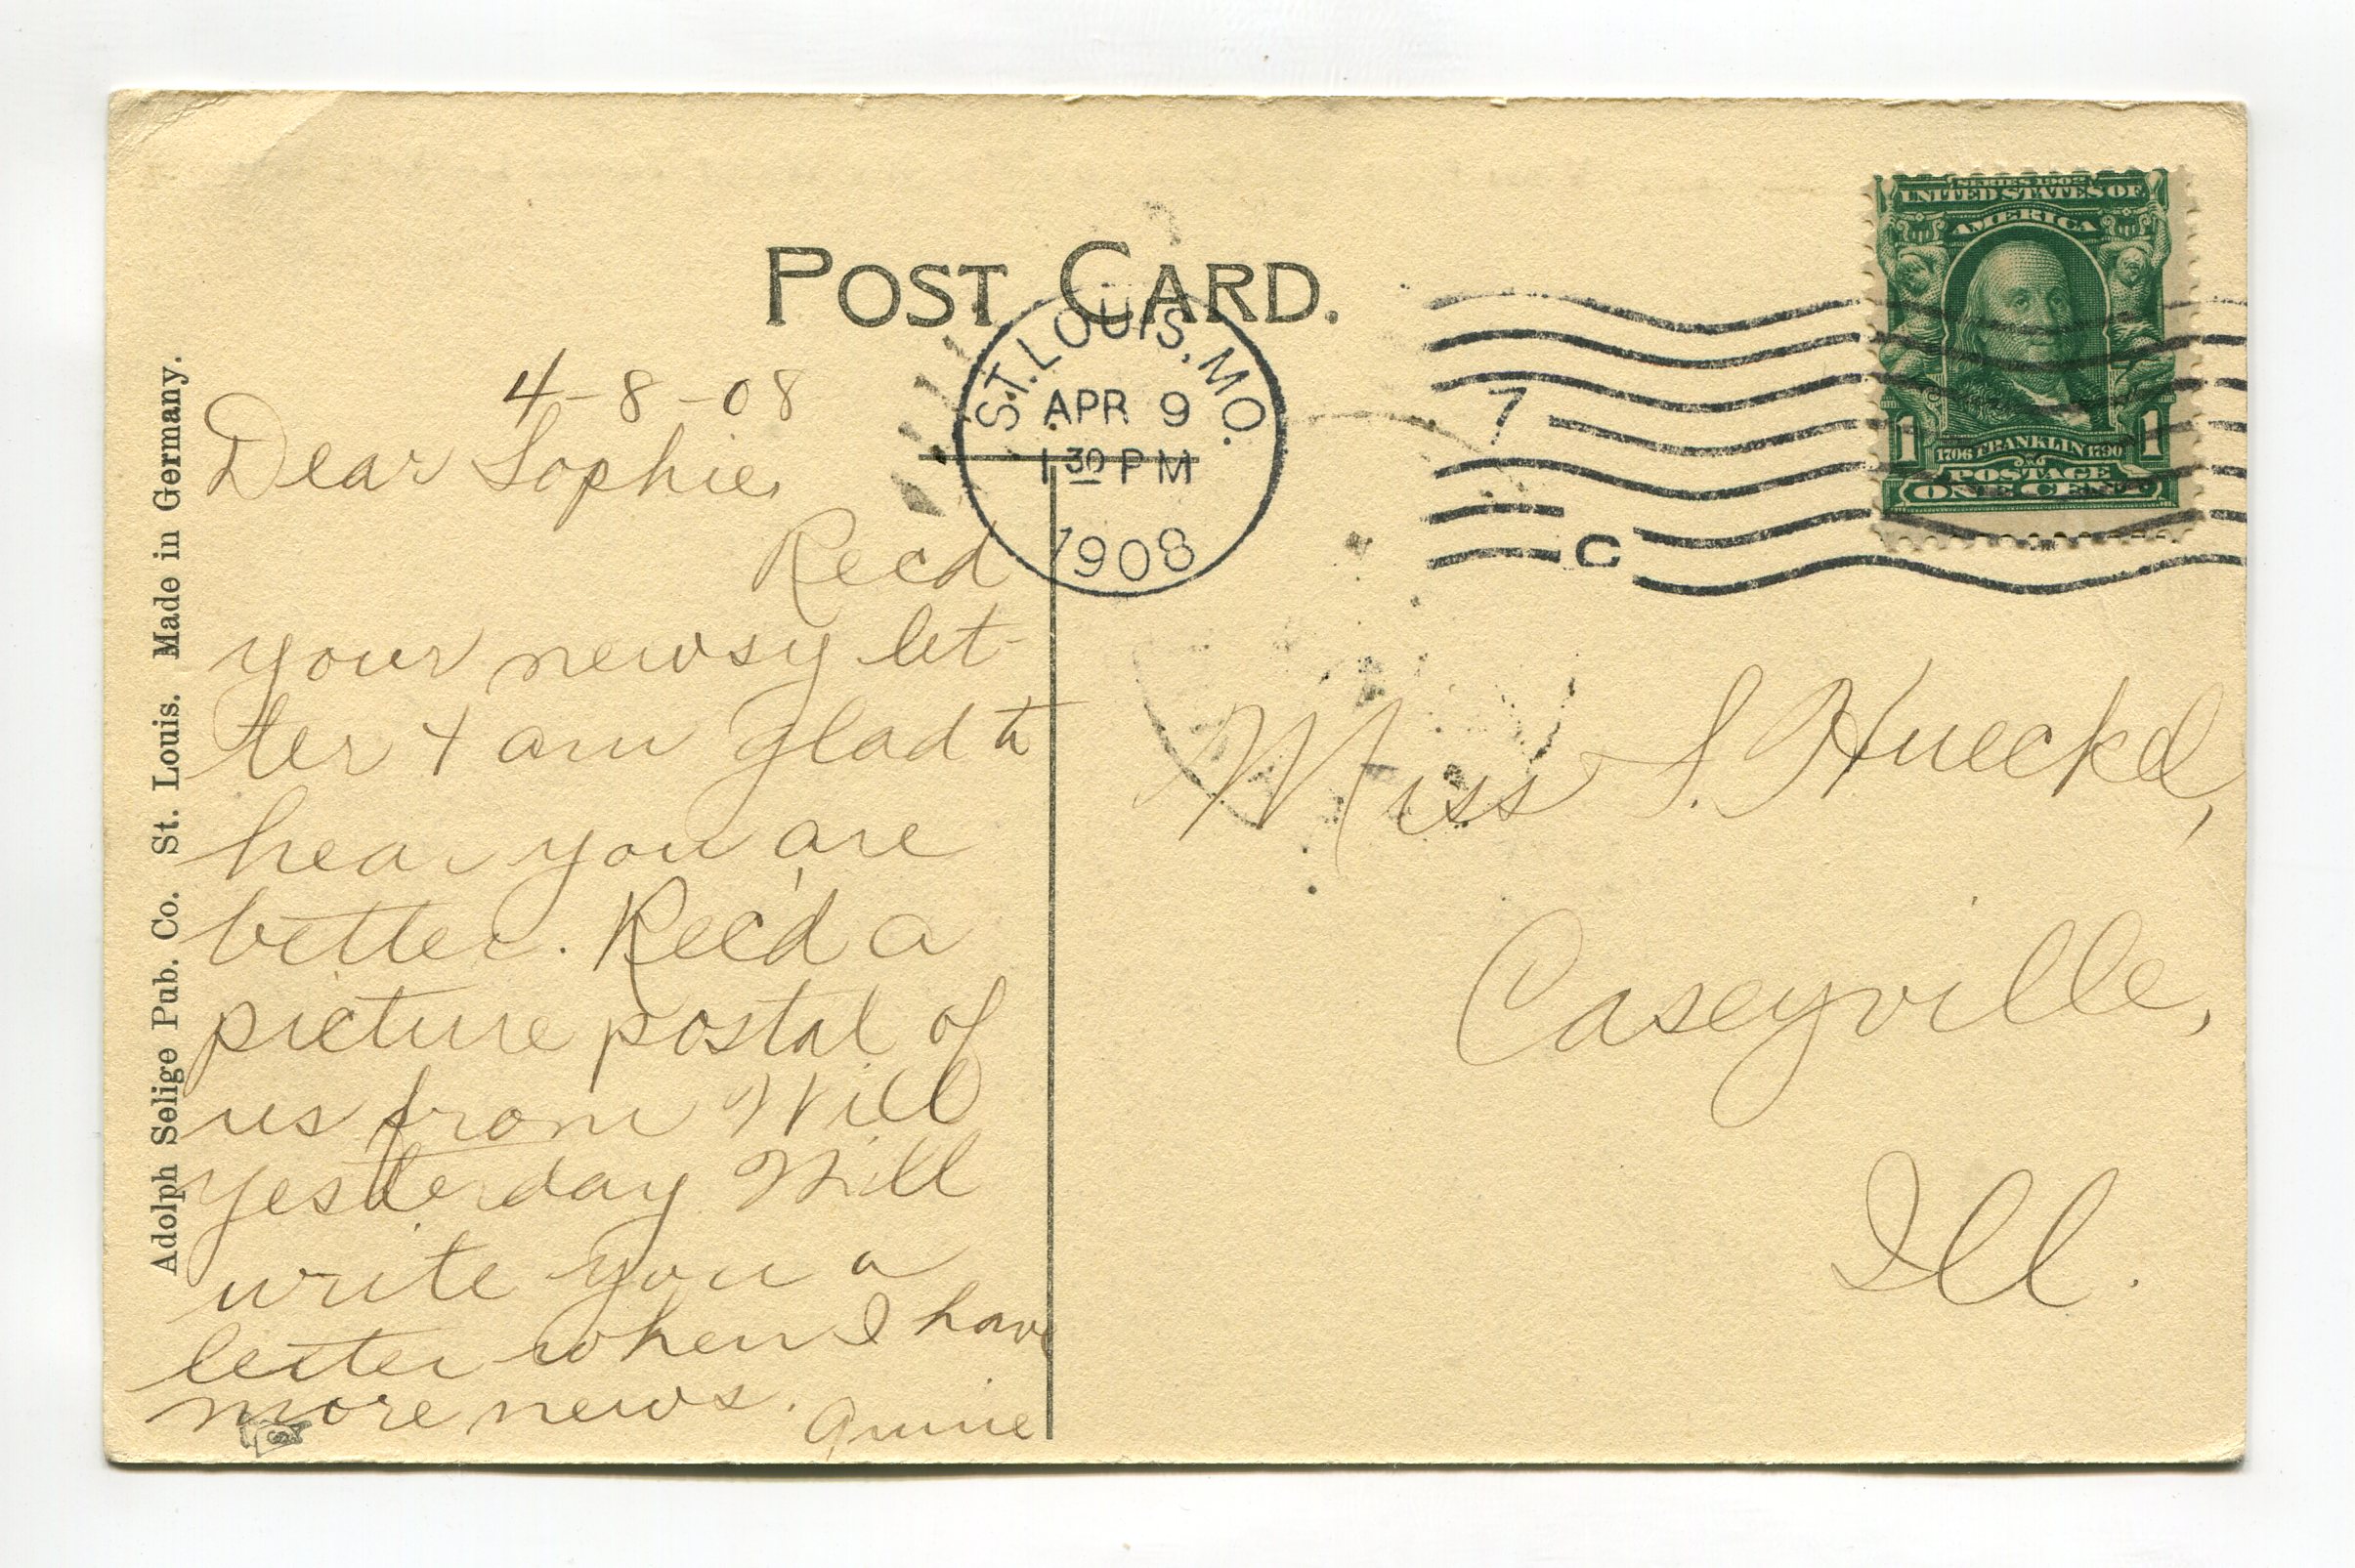 POST CARD.
ST. LOUIS, MO.
APR 9
1 30 PM
1908
7
C
SERIES 1902
UNITED STATES OF
AMERICA
1 1706 FRANKLIN 1790 1
POSTAGE
ONE CENT
Adolph Selige Pub. Co. St. Louis. Made in Germany.
4-8-08
Dear Sophie,
Recd
your newsy let-
ter + am glad to
hear you are
better. Rec'd a
picture postal of
us from Will
yesterday Will
write you a
letter when I have
more news.
Miss S. Hueckel,
Caseyville,
Ill.